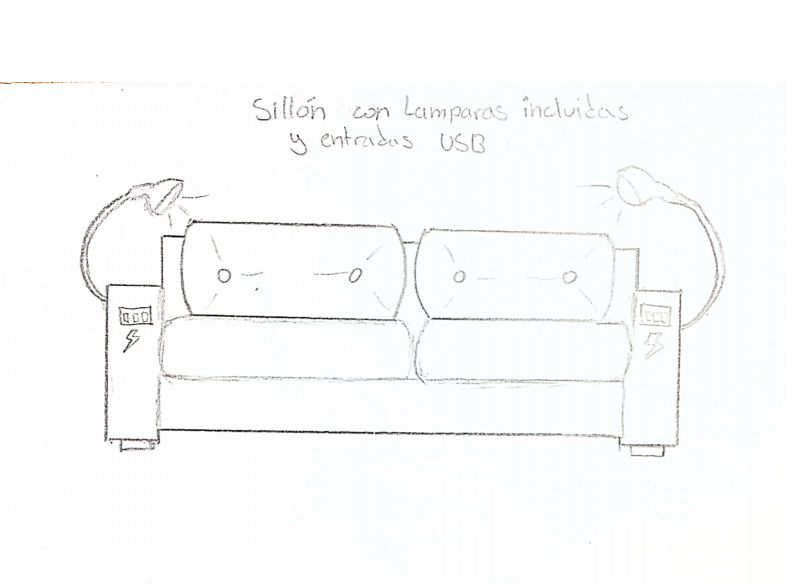 Sillón con Lamparas incluidas
y entradas USB